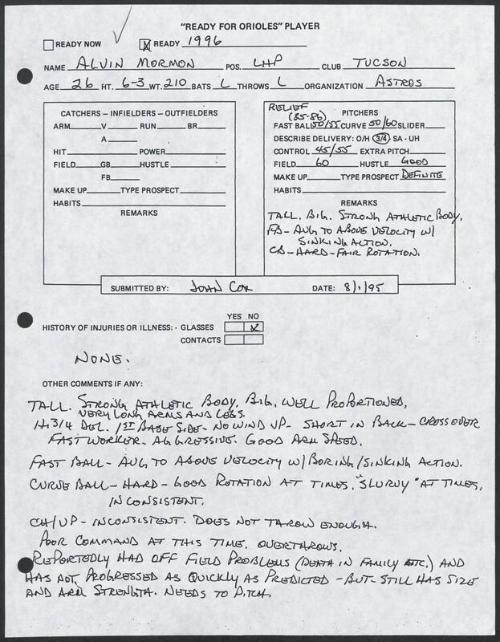 "READY FOR ORIOLES" PLAYER
READY NOW X READY 1996
NAME ALVIN MORMON POS. LHP CLUB TUCSON
AGE 26 HT. 6-3 WT. 210 BATS L THROWS L ORGANIZATION ASTROS
CATCHERS - INFIELDERS - OUTFIELDERS
ARM V RUN BR
A
HIT POWER
FIELD GB HUSTLE
FB
MAKE UP TYPE PROSPECT
HABITS
REMARKS
RELIEF PITCHERS
(85-86)
FAST BALL 50/55 CURVE 50/60 SLIDER
DESCRIBE DELIVERY: O/H 3/4 SA - UH
CONTROL 45/55 EXTRA PITCH
FIELD 60 HUSTLE GOOD
MAKE UP TYPE PROSPECT DEFINITE
HABITS
REMARKS
TALL. BIG. STRONG ATHLETIC BODY.
FB - AVG TO ABOVE VELOCITY W/
SINKING ACTION.
CB - HARD - FAIR ROTATION.
SUBMITTED BY: JOHN COX DATE: 8/1/95
YES NO
HISTORY OF INJURIES OR ILLNESS: - GLASSES X
CONTACTS
NONE.
OTHER COMMENTS IF ANY:
TALL. STRONG ATHLETIC BODY, BIG, WELL PROPORTIONED,
VERY LONG ARMS AND LEGS.
H. 3/4 DEL. 1ST BASE SIDE - NO WIND UP - SHORT IN BACK - CROSS OVER
FAST WORKER - AGGRESSIVE. GOOD ARM SPEED.
FAST BALL - AVG TO ABOVE VELOCITY W/ BORING/SINKING ACTION.
CURVE BALL - HARD - GOOD ROTATION AT TIMES, "SLURVY" AT TIMES,
INCONSISTENT.
CH/UP - INCONSISTENT. DOES NOT THROW ENOUGH.
POOR COMMAND AT THIS TIME. OVERTHROWS.
REPORTEDLY HAD OFF FIELD PROBLEMS (DEATH IN FAMILY ETC.) AND
HAS NOT PROGRESSED AS QUICKLY AS PREDICTED - BUT STILL HAS SIZE
AND ARM STRENGTH. NEEDS TO PITCH.